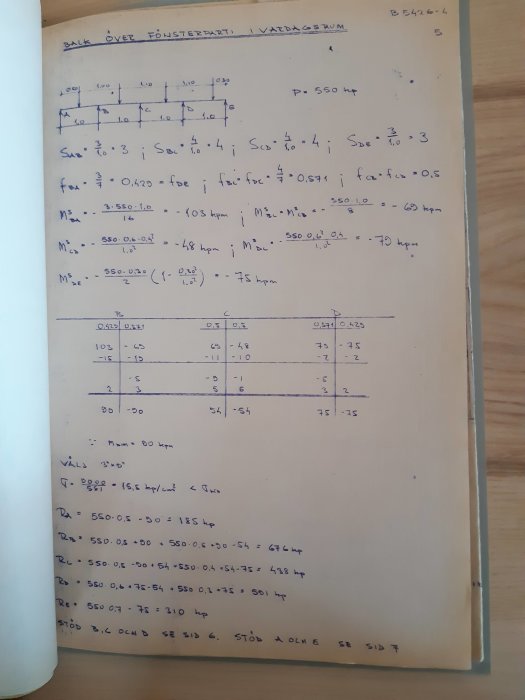 B5426-4
5
BALK ÖVER FÖNSTERPARTI I VARDAGSRUM
1.00 1.10 1.10 0.30
A B C D E
P = 550 kp
1.0 1.0 1.0 1.0
S_AB = 3/1,0 = 3 ; S_BC = 4/1,0 = 4 ; S_CD = 4/1,0 = 4 ; S_DE = 3/1,0 = 3
f_BA = 3/7 = 0,429 = f_DE ; f_BC = f_DC = 4/7 = 0,571 ; f_CB = f_CD = 0,5
M^s_BA = - 3·550·1,0/16 = -103 kpm ; M^s_BC = M^s_CB = - 550·1,0/8 = -69 kpm
M^s_CD = - 550·0,6·0,4²/1,0² = -48 kpm ; M^s_DC = - 550·0,6²·0,4/1,0² = -79 kpm
M^s_DE = - 550·0,30/2 (1 - 0,30²/1,0²) = -75 kpm
B C D
0,429 0,571 0,5 0,5 0,571 0,429
103 -69 69 -48 79 -75
-15 -19 -11 -10 -2 -2
-5 -9 -1 -5
2 3 5 6 3 2
90 -90 54 -54 75 -75
∵ M_max = 90 kpm
VÄLJ 3"×8"
σ = 9000/581 = 15,5 kp/cm² < σ_till
R_A = 550·0,5 - 90 = 185 kp
R_B = 550·0,5 + 90 + 550·0,5 + 90 - 54 = 676 kp
R_C = 550·0,5 - 90 + 54 + 550·0,4 + 54 - 75 = 438 kp
R_D = 550·0,6 + 75 - 54 + 550·0,3 + 75 = 591 kp
R_E = 550·0,7 - 75 = 310 kp
STÖD B, C OCH D SE SID 6. STÖD A OCH E SE SID 7